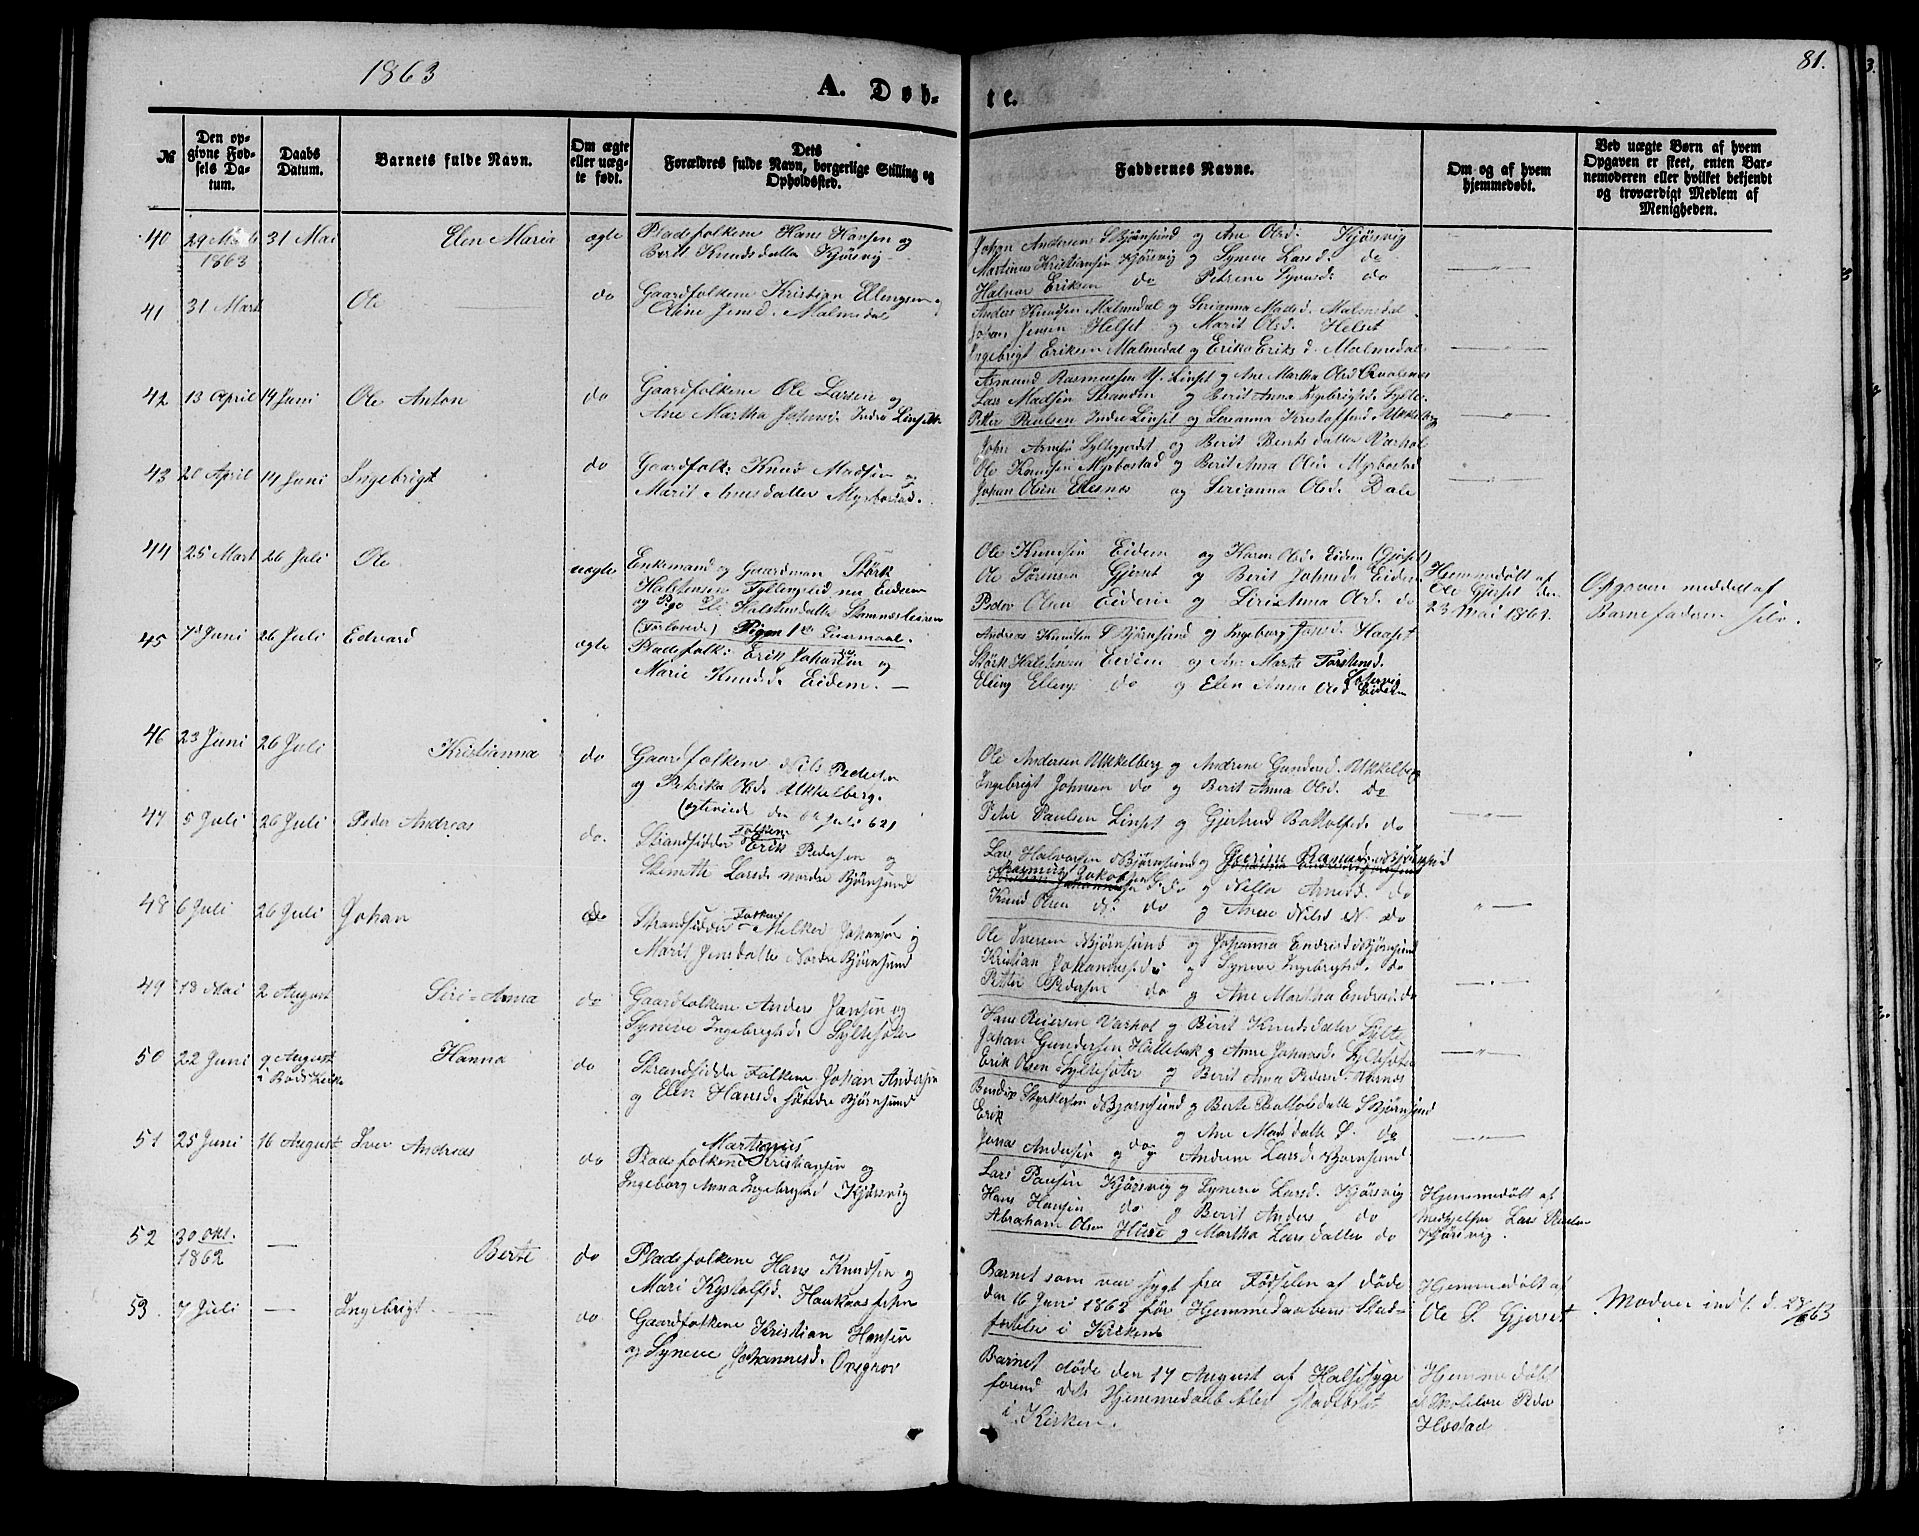 1863
A. Døb-
te.
81.
№
Den op-
givne Fød-
sels Da-
tum.
Daabs
Datum.
Barnets fulde Navn.
Om ægte
eller uæg-
te født.
Dets
Forældres fulde Navn, borgerlige Stilling og
Opholdssted.
Faddernes Navne.
Om og af hvem
hjemmedøbt.
Ved uægte Børn af hvem
Opgaven er skeet, enten Bar-
nemoderen eller hvilket bekjendt
og troværdigt Medlem af
Menigheden.
40 29 Marts 31 Mai Elen Maria ægte Pladsfolkene Hans Hansen og
1863 Berit Knudsdatter Kjørsvig
Johan Andersen S Bjørnsund og Ane Olsd. Kjørsvig
Martinus Kristiansen Kjørsvig og Syneve Larsd. do
Halvor Eriksen do Petrine do
41 31 Marts Ole do Gaardfolkene Kristian Ellingsen og
Ane Jensd. Malmedal
Anders Knudsen Malmedal og Serianna Madsd. Malmedal
Johan Jensen Helset og Marit Olsd. Helset
Ingebrigt Eriksen Malmedal og Erika Eriksd. Malmedal
42 13 April 14 Juni Ole Anton do Gaardfolkene Ole Larsen og
Ane Martha Johnsd. Indre Linset
Asmund Rasmussen Y. Linset og Ane Martha Olsd
Lars Madsen Stranden og Berit Anna Ingebrigtsd. Sylte
Peter Paulsen Indre Linset og Serianna Kristoffersd Ukkelberg
43 20 April 14 Juni Ingebrigt do Gaardfolk: Knud Madsen og
Marit Arnesdatter Myrbostad.
John Arnesen Syltegjerdet og Berit Berntsdatter Varhol
Ole Knudsen Myrbostad og Berit Anna Olsd. Myrbostad
Johan Olsen Elesnes og Serianna Olsd. Dale
44 25 Mart 26 Juli Ole uægte Enkemand og Gaardman Størk
Halstensen Fyllingslid nu Eidem
og Pige Halstensdatter
(Forlovede) Pigen 1ste Leiermaal.
Ole Knudsen Eidem og Karen Olsd. Eidem (Gjerset)
Ole Sørensen Gjerset og Berit Johnsd. Eidem
Peder Olsen Eidem og Siri Anna Olsd. do
Hjemmedøbt af
Ole Gjerset den
23 Mai 1863.
Opgaven meddelt af
Barnefaderen selv.
45 7 Juni 26 Juli Edvard ægte Pladsfolk: Erik Johansen og
Marie Knudsd. Eidem.
Andreas Knudsen S Bjørnsund og Ingeborg Jonsd. Haaset
Størk Halstensen Eidem og Ane Marte Torstensd.
Elling Ellings. do og Elen Anna Olsd Eidem
46 23 Juni 26 Juli Kristianna do Gaardfolkene Nils Pedersen
og Petrika Olsd. Ukkelberg.
(Ægteviede den Juli 62)
Ole Andersen Ukkelberg og Andrine Gundersd. Ukkelberg
Ingebrigt Johnsen do og Berit Anna Olsd. do
Peter Paulsen Linset og Gjertrud Bottolfsd. do
47 5 Juli 26 Juli Peder Andreas do. Strandsidder Folkene Erik Pedersen og
Larsd. nordre Bjørnsund
Lars Halvorsen N Bjørnsund og
do og Nella Arnesd. do
Knud Olsen N. do og Ane Nilsd N. do
48 6 Juli 26 Juli Johan do Strandsidder Folkene Melker Johansen og
Marit Jensdatter Nordre Bjørnsund
Ole Iversen N Bjørnsund og Johanna Endresd N Bjørnsund
Kristian Johannesd. og Syneve Ingebrigtsd. do
Petter Pedersen do og Ane Martha Endresd. do
49 18 Mai 2 August Siri-Anna do Gaardfolkene Anders Jansen og
Syneve Ingebrigtsd. Syltesæter
Hans Reiersen Varhol og Berit Knudsdatter Sylte
Johan Gundersen Hallebak og Anne Johnsd. Syltesæter
Erik Olsen Syltesæter og Berit Anna Pedersd. Varnes
50 22 Juni 9 August Hanna do Strandsidder Folkene Johan Andersen
i Buds Kirke og Elen Hansd. søndre Bjørnsund
Bendix Styrkersen N Bjørnsund og Berte Bottolfsdatter S Bjørnsund
Erik do og Ane Madsdatter S. do
Jonas Andersen og do og Andrine Larsd. Bjørnsund
51 25 Juni 16 August Iver Andreas do Pladsfolkene Martinus Kristiansen og
Ingeborg Anna Ingebrigtsd Kjørsvig
Lars Paulsen Kjørsvig og Syneve Larsd. Kjørsvig
Hans Hansen do og Berit Anders do
Abraham Olsen Huse og Martha Larsdatter do
Hjemmedøbt af
Medhjelper Lars Paulsen
Kjørsvig.
52 30 Okt.
1862 — Berte do Pladsfolkene Hans Knudsen og
Mari Kristofsd. Haukaas
Barnet som var sygt fra Fødselen af døde
den 16 Juni 1863 før Hjemmedaabens Stad-
festelse i Kirken
Hjemmedøbt af
Ole S. Gjerset
Modner indf. d. 28/6 63
53 7 Juli — Ingebrigt do Gaardfolkene Kristian Hansen
og Syneve Johannesd. Oregrov
Barnet døde den 17 August af Halssyge
forend dets Hjemmedaab blev stadfæstet
i Kirken.
Hjemmedøbt
af Skolelærer Peder
Hostad